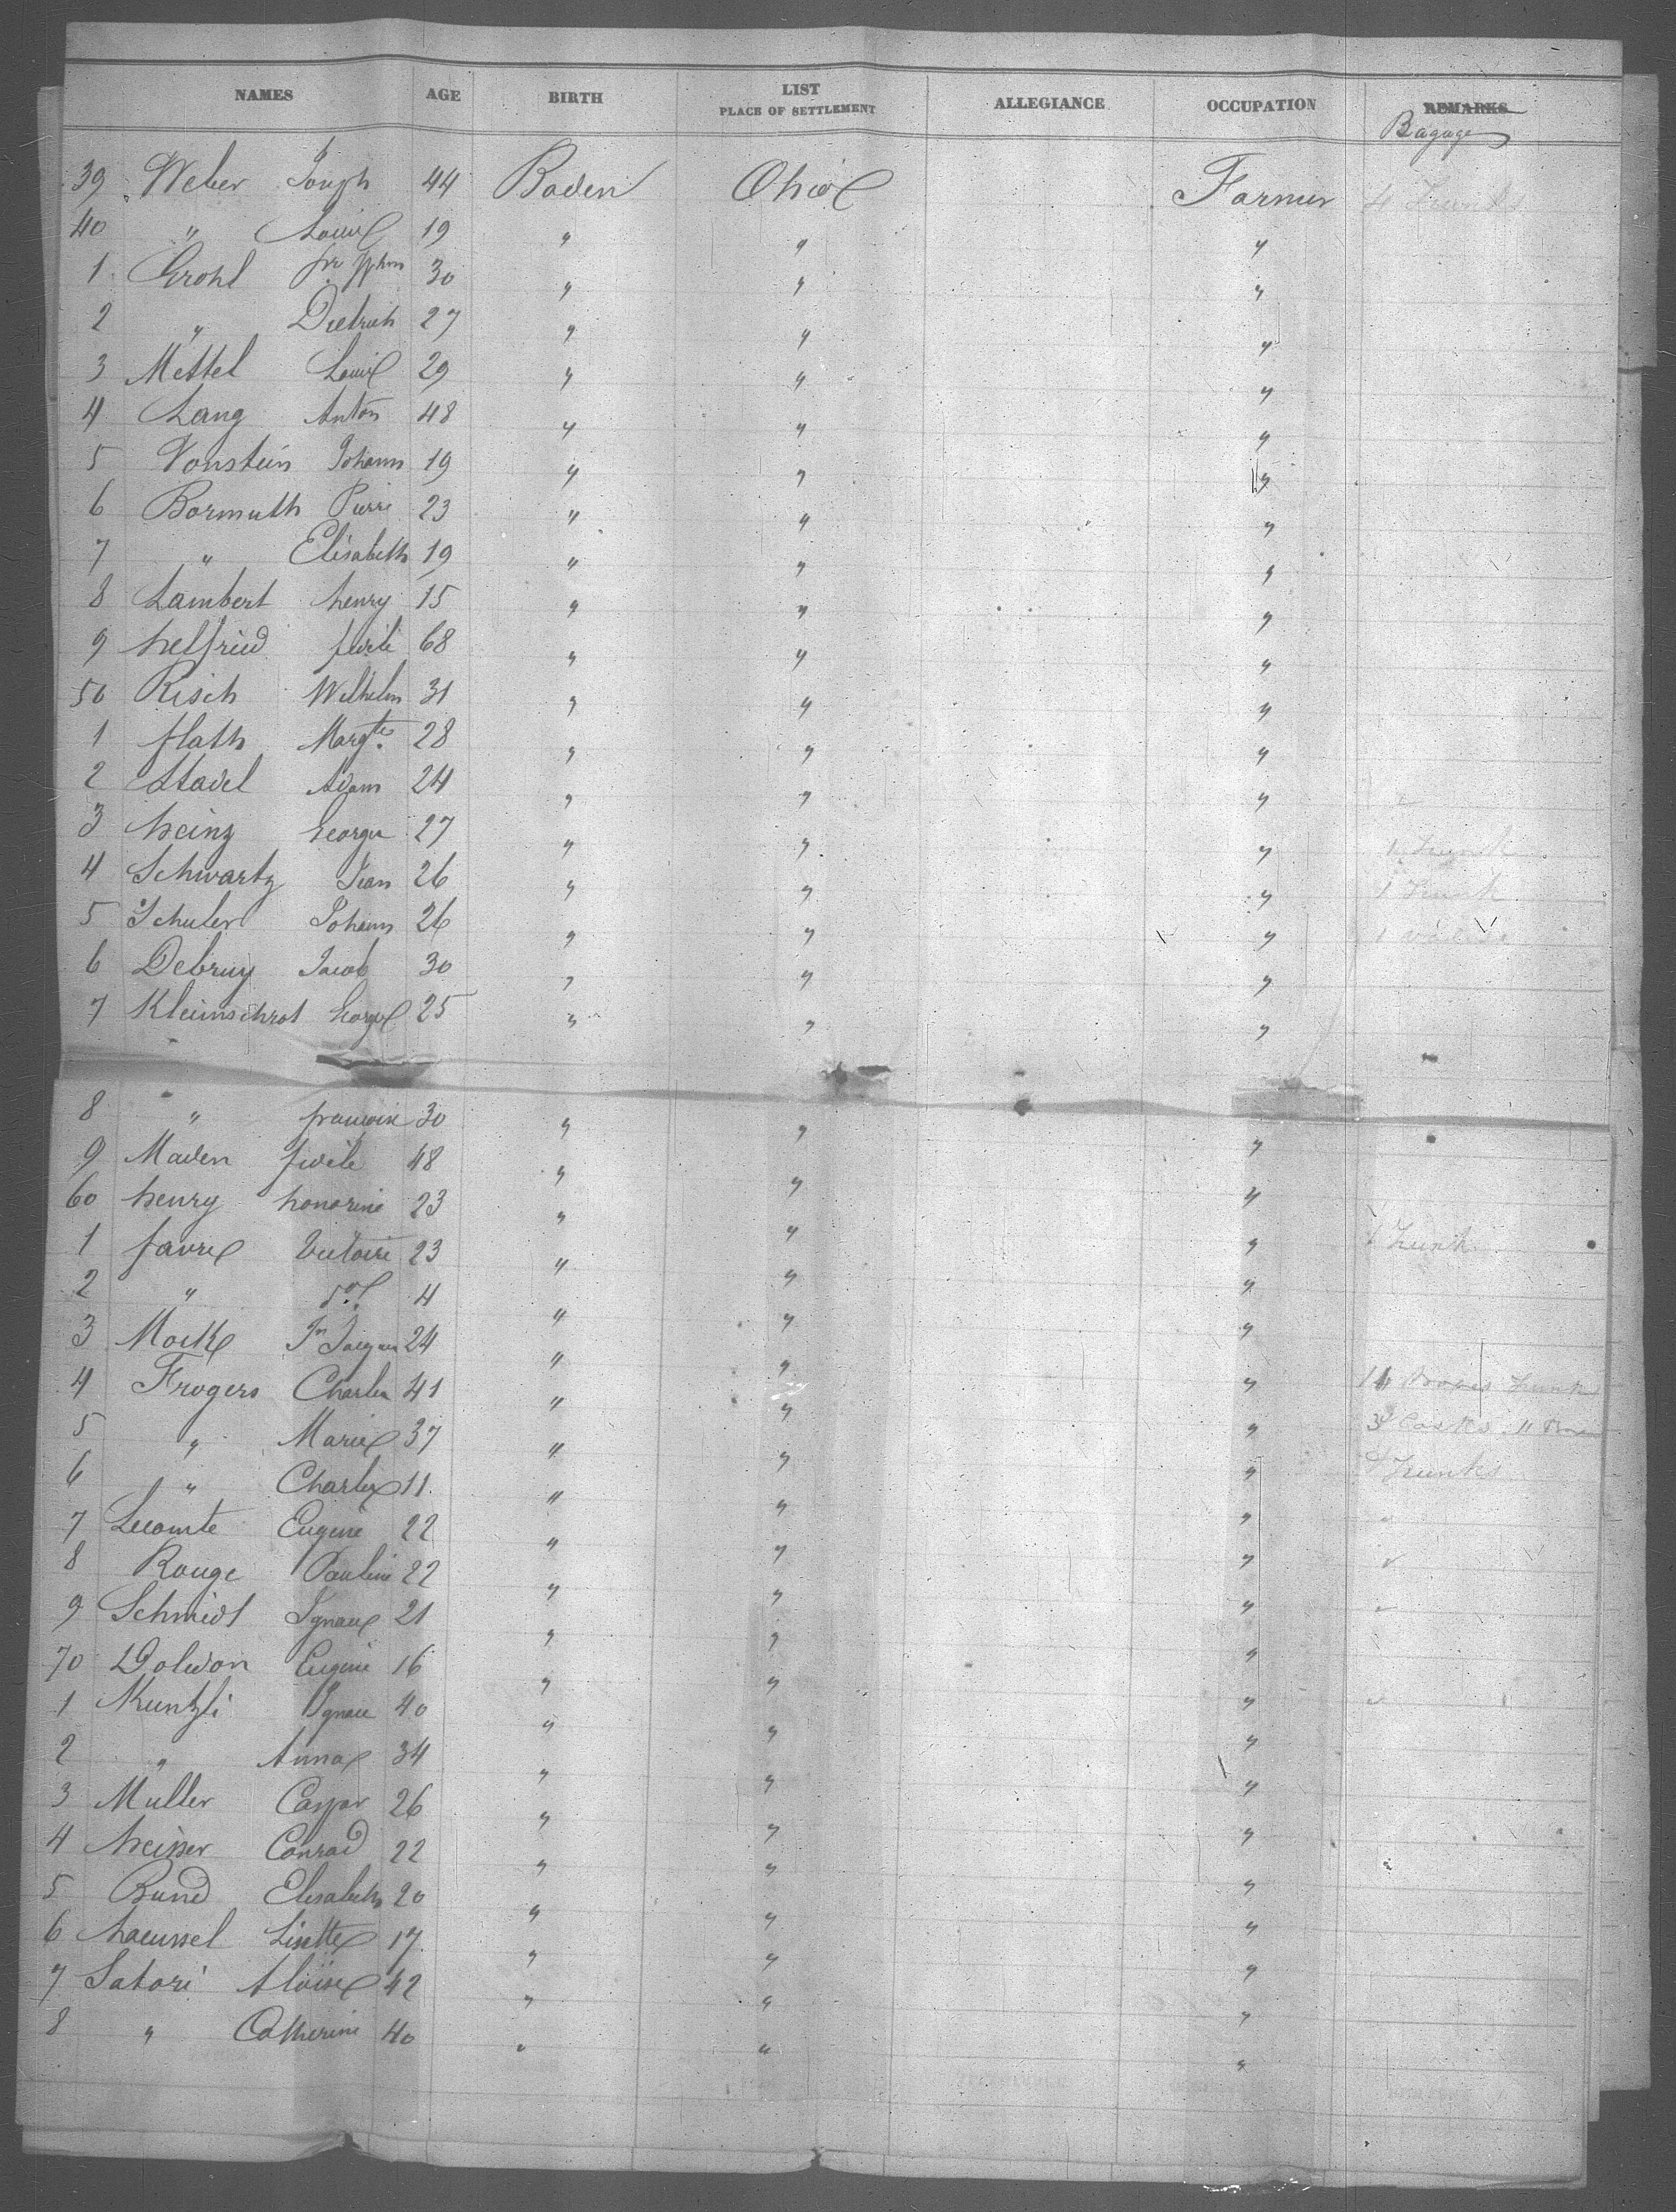 NAMES AGE BIRTH LIST PLACE OF SETTLEMENT ALLEGIANCE OCCUPATION REMARKS
Bagage
39 Weber Joseph 44 Baden Ohio Farmer 4 Trunks
40 " Louise 19 " " "
1 Grohl 30 " " "
2 " Dietrich 27 " " "
3 Mettel Louise 29 " " "
4 Lang Anton 48 " " "
5 Vonstein Johann 19 " " "
6 Bormuth Pierre 23 " " "
7 " Elisabeth 19 " " "
8 Lambert henry 15 " " "
9 helfried 68 " " "
50 Risch Wilhelm 31 " " "
1 flath Margte. 28 " " "
2 Stadel Adam 24 " " "
3 heinz George 27 " " " 1 Trunk
4 Schwartz Jean 26 " " " 1 Trunk
5 Schuler Johann 26 " " " 1 valise
6 Debruy Jacob 30 " " "
7 Kleinschrot George 25 " " "
8 " francois 30 " " "
9 Maden fidele 48 " " "
60 henry honorine 23 " " "
1 favre Victoire 23 " " " 1 Trunk
2 " 4 " " "
3 Mock 24 " " "
4 Frogers Charles 41 " " " Boxes Trunk
5 " Marie 37 " " " 3 Casks
6 " Charles 11 " " " Trunks
7 Lecomte Eugene 22 " " "
8 Rouge Pauline 22 " " "
9 Schmidt Ignace 21 " " "
70 Doledon Eugene 16 " " "
1 Kuntzli Ignace 40 " " "
2 " Anna 34 " " "
3 Muller Caspar 26 " " "
4 heisser Conrad 22 " " "
5 Bund Elisabeth 20 " " "
6 haeussel Lisette 17 " " "
7 Satori Aloïse 42 " " "
8 " Catherine 40 " " "